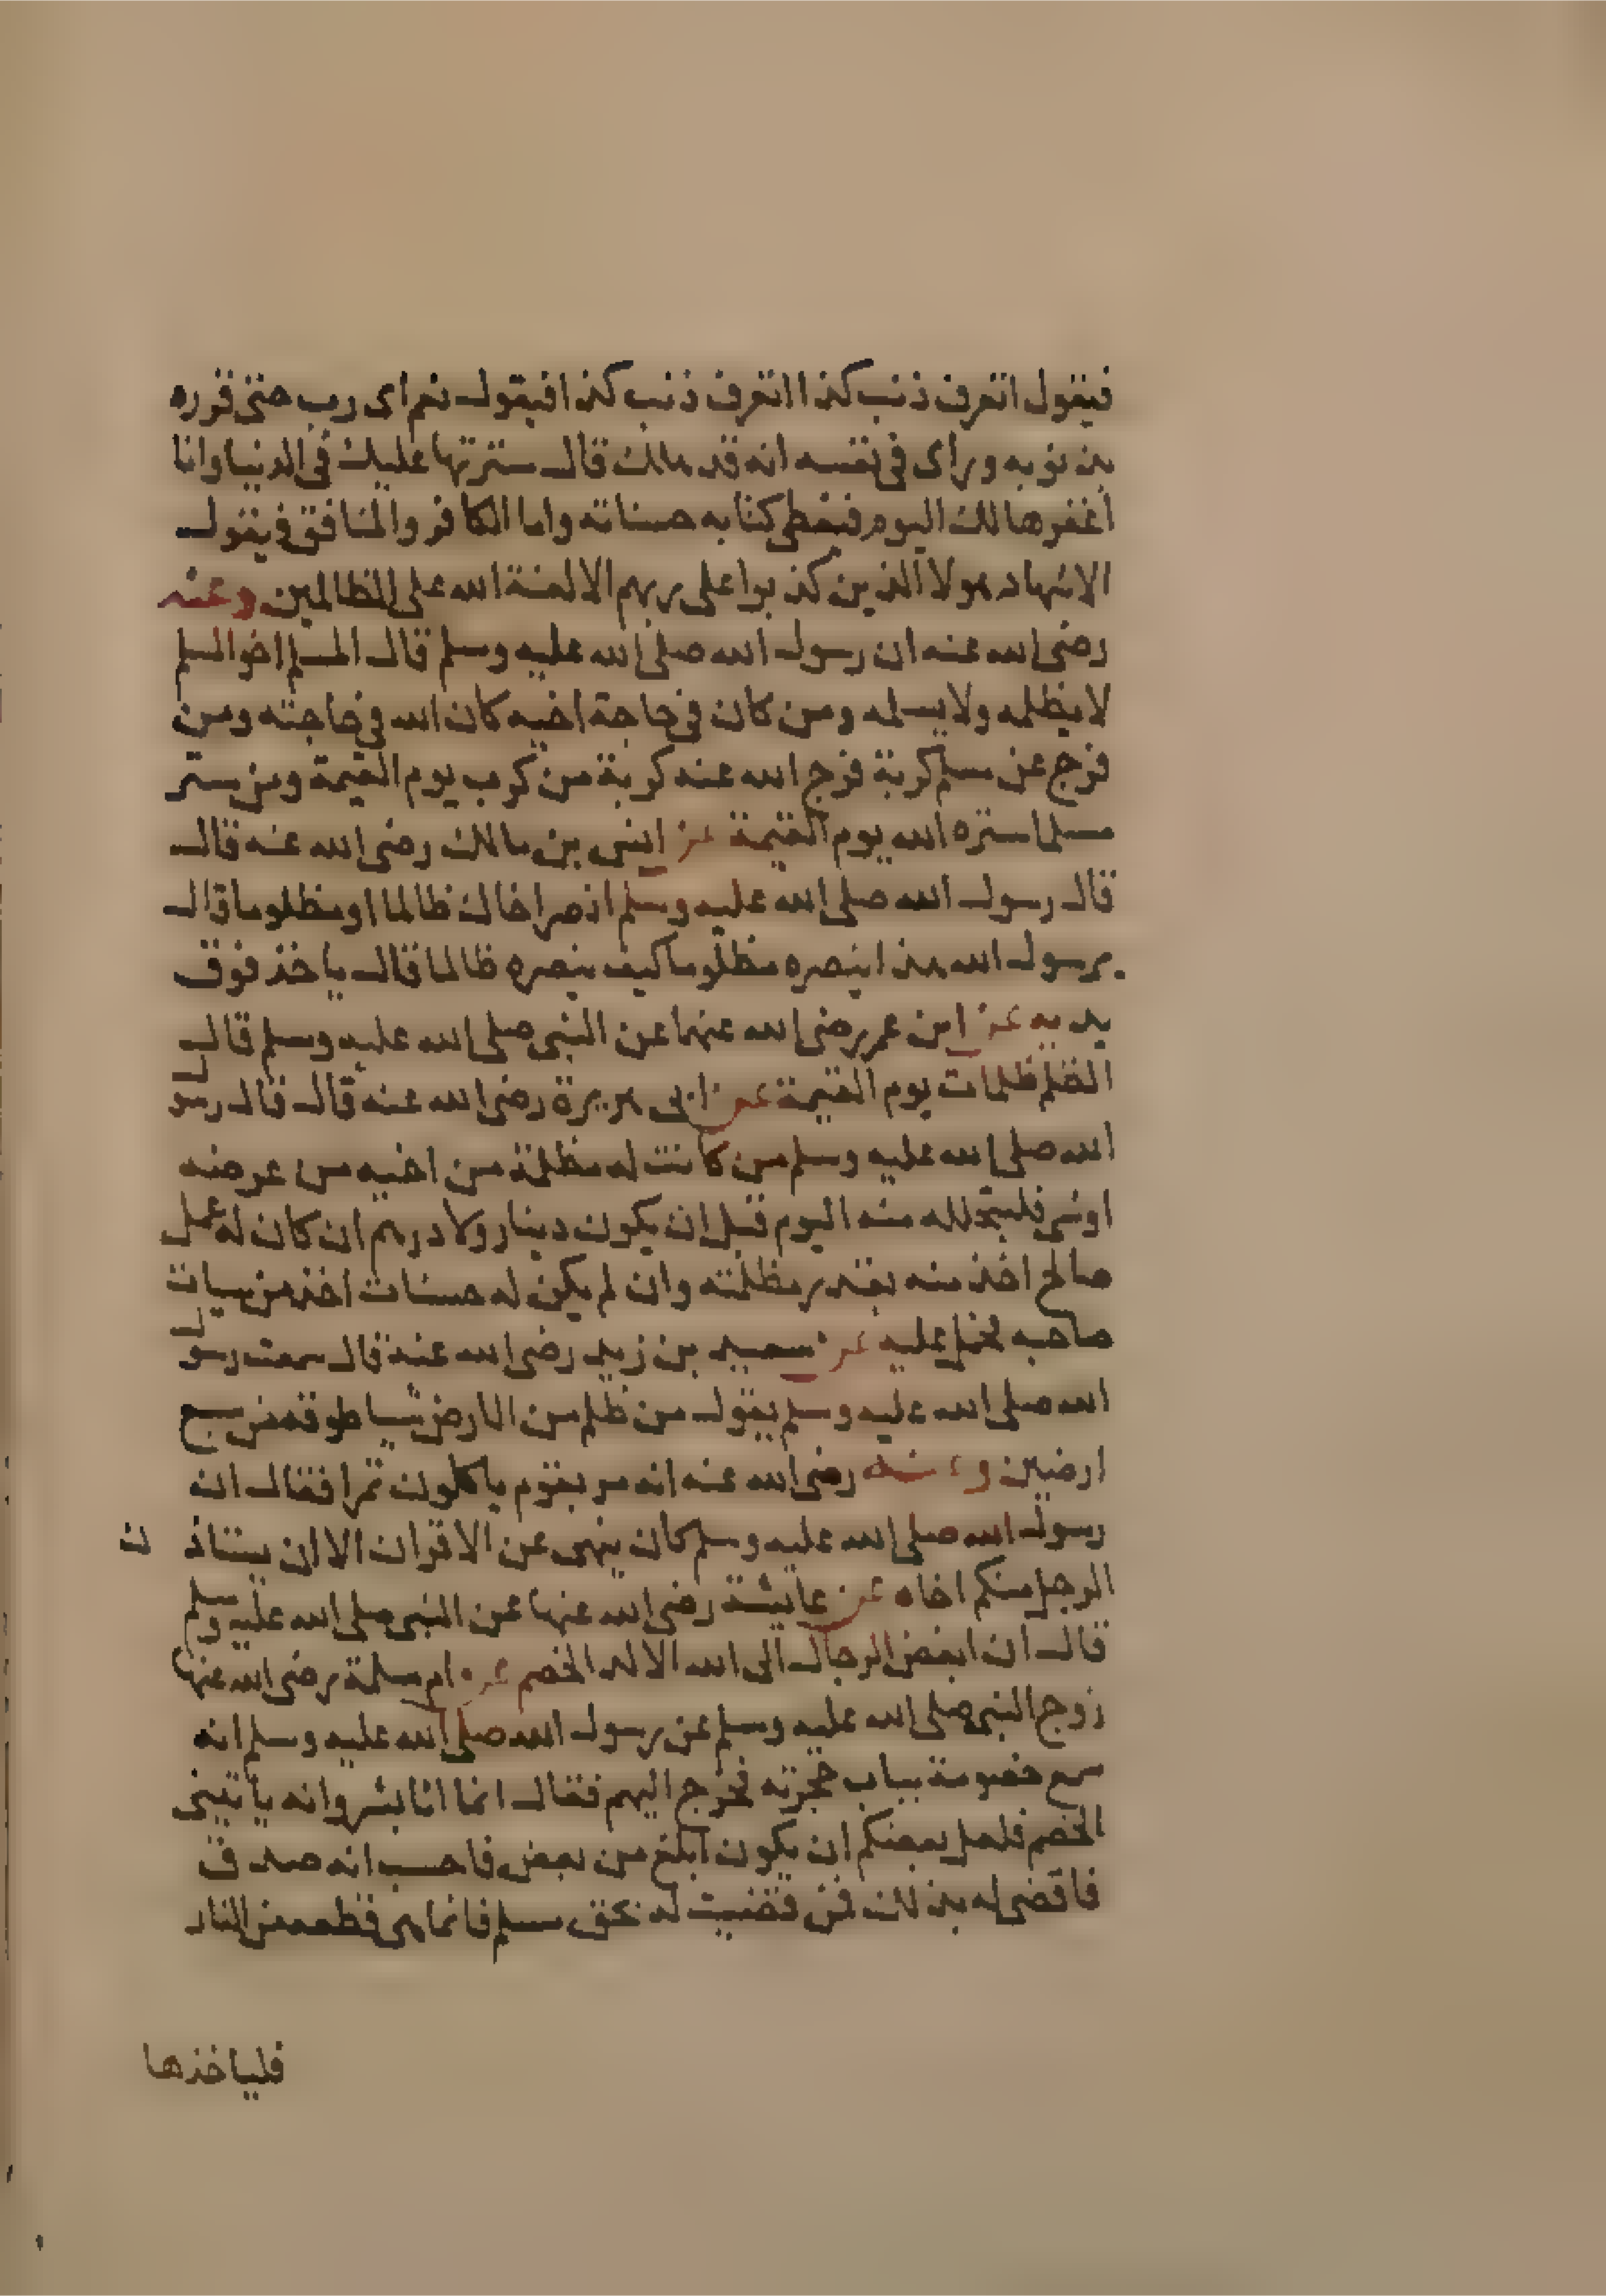 فيقول اتعرف ذنب كذا اتعرف ذنب كذا فيقول نعم اى رب حتى قرره
بذنوبه وراى فى نفسه انه قد هلك قال سترتها عليك فى الدنيا وانا
اغفرها لك اليوم فيعطى كتابه حسناته واما الكافر والمنافق فيقول
الاشهاد هولا الذين كذبوا على ربهم الا لعنة الله على الظالمين وعنه
رضى الله عنه ان رسول الله صلى الله عليه وسلم قال المسلم اخو المسلم
لا يظلمه ولا يسلمه ومن كان فى حاجة اخيه كان الله فى حاجته ومن
فرج عن مسلم كربة فرج الله عنه كربة من كرب يوم القيمة ومن ستر
مسلما ستره الله يوم القيمة عن انس بن مالك رضى الله عنه قال
قال رسول الله صلى الله عليه وسلم انصر اخاك ظالما او مظلوما قال
يرسول الله هذا ينصره مظلوما كيف ينصره ظالما قال ياخذ فوق
يديه عن ابن عمر رضى الله عنهما عن النبى صلى الله عليه وسلم قال
الظلم ظلمات يوم القيمة عن ابى هريرة رضى الله عنه قال قال رسول
الله صلى الله عليه وسلم من كانت له مظلمة من اخيه من عرضه
او شى فليتحلله منه اليوم قبل ان يكون دينار ولا درهم ان كان له عمل
صالح اخذ منه بقدر مظلمته وان لم يكن له حسنات اخذ من سيات
صاحبه فحمل عليه عن سعيد بن زيد رضى الله عنه قال سمعت رسول
الله صلى الله عليه وسلم يقول من ظلم من الارض شيا طوقه من سبع
ارضين وعنه رضى الله عنه انه مر بقوم ياكلون تمرا فقال ان
رسول الله صلى الله عليه وسلم كان ينهى عن الاقران الا ان يستاذن
الرجل منكم اخاه عن عايشة رضى الله عنها عن النبى صلى الله عليه وسلم
قال ان ابغض الرجال الى الله الالد الخصم عن ام سلمة رضى الله عنها
زوج النبى صلى الله عليه وسلم عن رسول الله صلى الله عليه وسلم انه
سمع خصومة بباب حجرته فخرج اليهم فقال انما انا بشر وانه ياتينى
الخصم فلعل بعضكم ان يكون ابلغ من بعض فاحسب انه صدق
فاقضى له بذلك فمن قضيت له بحق مسلم فانما هى قطعه من النار
فلياخذها